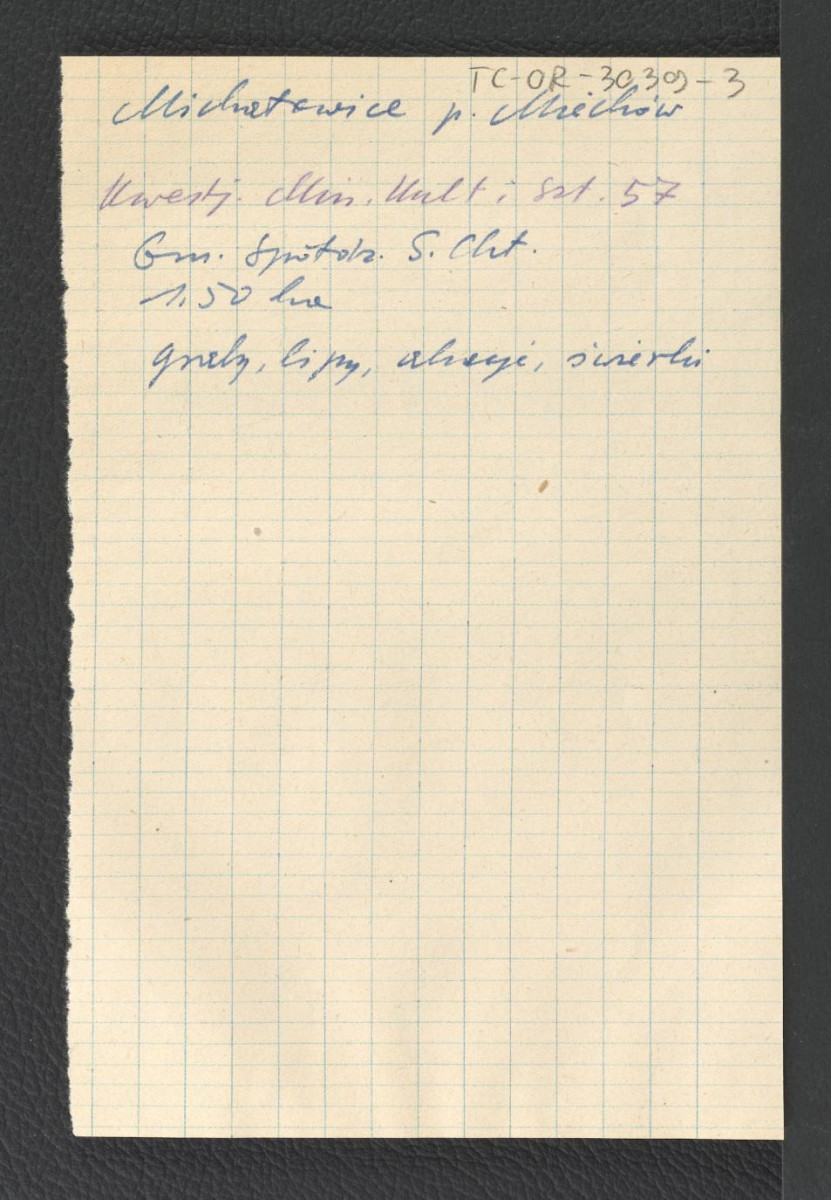 TC-OR-3039-3
Michałowice p. Miechów
Kwestj. Min. Kult i Szt. 57
Gm. Spółdz. S. Chł.
1.50 ha
graby, lipy, akacje, świerki